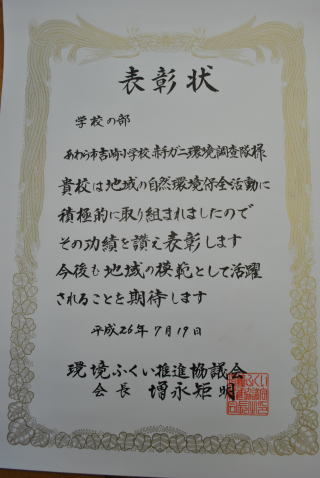 表彰状
学校の部
あわら市吉崎小学校 赤手ガニ環境調査隊様
貴校は地域の自然環境保全活動に
積極的に取り組まれましたので
その功績を讃え表彰します
今後も地域の模範として活躍
されることを期待します
平成26年7月19日
環境ふくい推進協議会
会長 増永矩明